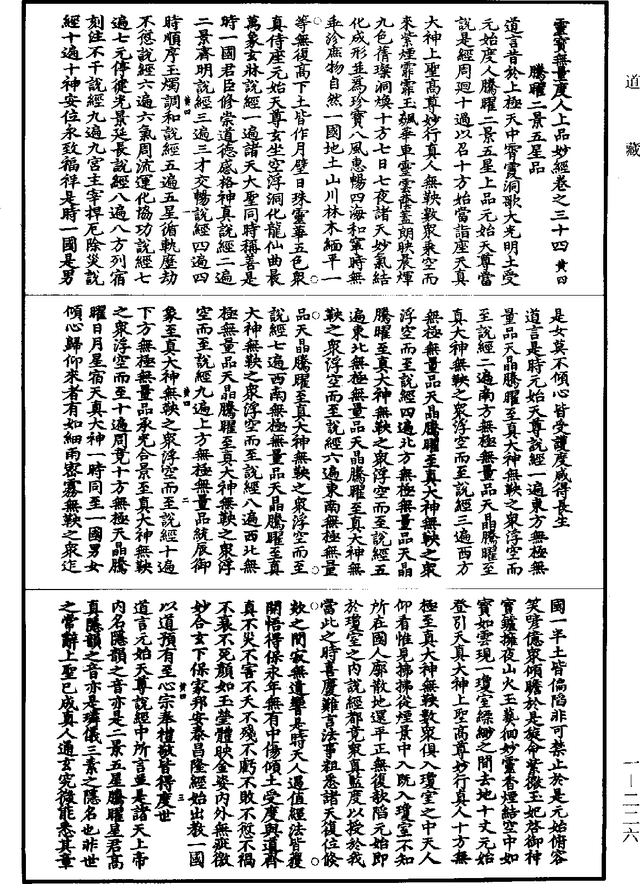 道藏
一—二二六
靈寶無量度人上品妙經卷之三十四 黄四
騰曜二景五星品
道言昔於上極天中霄霞洞歌大光明土受
元始度人騰曜二景五星上品元始天尊當
說是經周迴十過以召十方始當詣座天真
大神上聖高尊妙行真人無鞅數眾乘空而
來紫煙霏霏玉颷華車靈雲飛蓋朗映晨煇
九色蒨璨洞煥十方七日七夜諸天妙氣結
化成形並爲珍寶八風惠暢四海和寧時無
乖沴庶物自然一國地土山川林木緬平一
等無復高下土皆作月璧日珠靈華五色眾
真侍座元始天尊玄坐空浮洞化龍仙曲晨
萬象玄牀說經一遍諸天大聖同時稱善是
時一國君臣修崇道德感格神真說經二遍
二景齊明說經三遍三才交暢說經四遍四
時順序玉燭調和說經五遍五星循軌塵劫
不愆說經六遍六氣周流運化協功說經七
遍七元停徒光景延長說經八遍八方列宿
刻注不干說經九遍九宮主宰捍厄除災說
經十遍十神安位永致福祥是時一國是男
是女莫不傾心皆受護度咸得長生
道言是時元始天尊說經一遍東方無極無
量品天晶騰曜至真大神無鞅之眾浮空而
至說經二遍南方無極無量品天晶騰曜至
真大神無鞅之眾浮空而至說經三遍西方
無極無量品天晶騰曜至真大神無鞅之眾
浮空而至說經四遍北方無極無量品天晶
騰曜至真大神無鞅之眾浮空而至說經五
遍東北無極無量品天晶騰曜至真大神無
鞅之眾浮空而至說經六遍東南無極無量
品天晶騰曜至真大神無鞅之眾浮空而至
說經七遍西南無極無量品天晶騰曜至真
大神無鞅之眾浮空而至說經八遍西北無
極無量品天晶騰曜至真大神無鞅之眾浮
空而至說經九遍上方無極無量品統辰御
象至真大神無鞅之眾浮空而至說經十遍
下方無極無量品承光合景至真大神無鞅
之眾浮空而至十遍周竟十方無極天晶騰
曜日月星宿天真大神一時同至一國男女
傾心歸仰來者有如細雨密霧無鞅之眾迮
國一半土皆偏陷非可禁止於是元始俯容
笑唫億眾傾瞻於是旋命紫微玉妃啓御神
霄鑪擁夜山火王英細妙靈香煙結空中如
寶如雲現一瓊室縹緲之間去地十丈元始
登引天真大神上聖高尊妙行真人十方無
極至真大神無鞅數眾俱入瓊室之中天人
仰看惟見拂拂從煙景中入既入瓊室不知
所在國人廓散地還平正無復欹陷元始即
於瓊室之內說經都竟眾真監度以授於我
當此之時喜慶難言法事粗悉諸天復位倏
欻之間寂無遺響是時天人遇值經法皆獲
開悟得保永年無有中傷傾土受度與道齊
真不災不害不夭不殘不虧不敗不愆不禍
不衰不死顏如玉瑩體映金姿內外無疵微
妙合玄下保家邦安泰昌隆經始出教一國
以道預有至心宗奉禮敬皆得度世
道言元始天尊說經中所言並是諸天上帝
內名隱韻之音亦是二景五星騰曜星君高
真隱韻之音亦是璘儀三素之隱名也非世
之常辭上聖已成真人通玄究微能悉其章